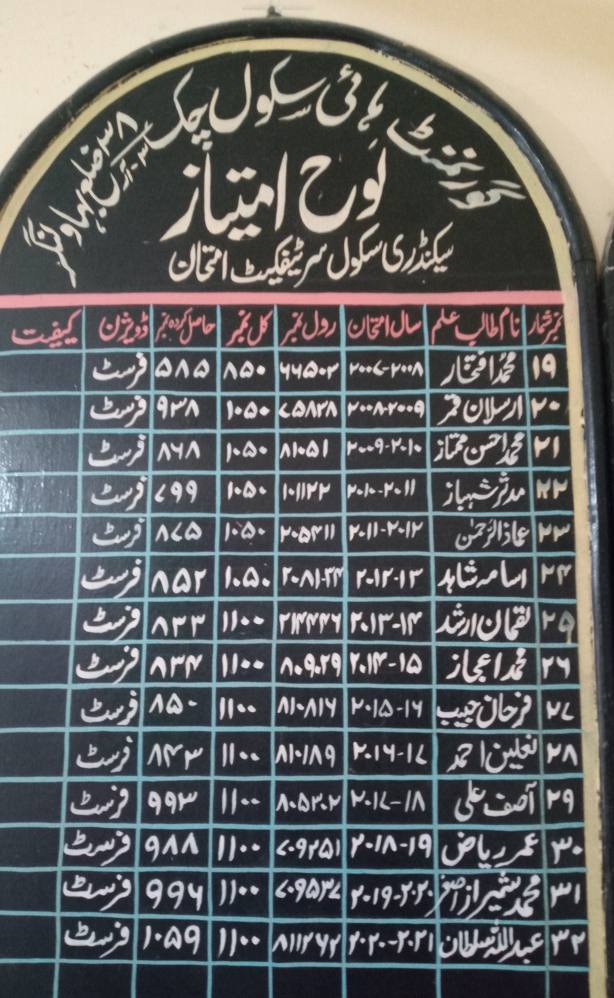 گورنمنٹ ہائی سکول چک ۳۸/۳۔آر ضلع بہاولنگر
لوح امتیاز
سیکنڈری سکول سرٹیفکیٹ امتحان
نمبر شمار نام طالب علم سال امتحان رول نمبر کل نمبر حاصل کردہ نمبر ڈویژن کیفیت
۱۹ محمد افتخار ۲۰۰۷-۲۰۰۸ ۶۶۵۰۲ ۸۵۰ ۵۸۵ فرسٹ
۲۰ ارسلان قمر ۲۰۰۸-۲۰۰۹ ۷۵۸۲۸ ۱۰۵۰ ۹۳۸ فرسٹ
۲۱ محمد احسن ممتاز ۲۰۰۹-۲۰۱۰ ۸۱۰۵۱ ۱۰۵۰ ۸۶۸ فرسٹ
۲۲ مدثر شہباز ۲۰۱۰-۲۰۱۱ ۱۰۱۱۲۲ ۱۰۵۰ ۷۹۹ فرسٹ
۲۳ عاذ الرحمٰن ۲۰۱۱-۲۰۱۲ ۲۰۵۴۱۱ ۱۰۵۰ ۸۷۵ فرسٹ
۲۴ اسامہ شاہد ۲۰۱۲-۱۳ ۱۰۵۰ ۸۵۲ فرسٹ
۲۵ لقمان ارشد ۲۰۱۳-۱۴ ۲۱۴۴۴۶ ۱۱۰۰ ۸۳۳ فرسٹ
۲۶ محمد اعجاز ۲۰۱۴-۱۵ ۸۰۹۰۲۹ ۱۱۰۰ ۸۳۴ فرسٹ
۲۷ فرحان حبیب ۲۰۱۵-۱۶ ۸۱۰۸۱۶ ۱۱۰۰ ۸۵۰ فرسٹ
۲۸ نعلین احمد ۲۰۱۶-۱۷ ۸۱۰۱۸۹ ۱۱۰۰ ۸۴۳ فرسٹ
۲۹ آصف علی ۲۰۱۷-۱۸ ۸۰۵۳۰۲ ۱۱۰۰ ۹۹۳ فرسٹ
۳۰ عمر ریاض ۲۰۱۸-۱۹ ۷۰۹۲۵۱ ۱۱۰۰ ۹۸۸ فرسٹ
۳۱ محمد شیراز اصغر ۲۰۱۹-۲۰۲۰ ۷۰۹۵۳۷ ۱۱۰۰ ۹۹۶ فرسٹ
۳۲ عبداللہ سلطان ۲۰۲۰-۲۰۲۱ ۸۱۱۲۶۲ ۱۱۰۰ ۱۰۵۹ فرسٹ